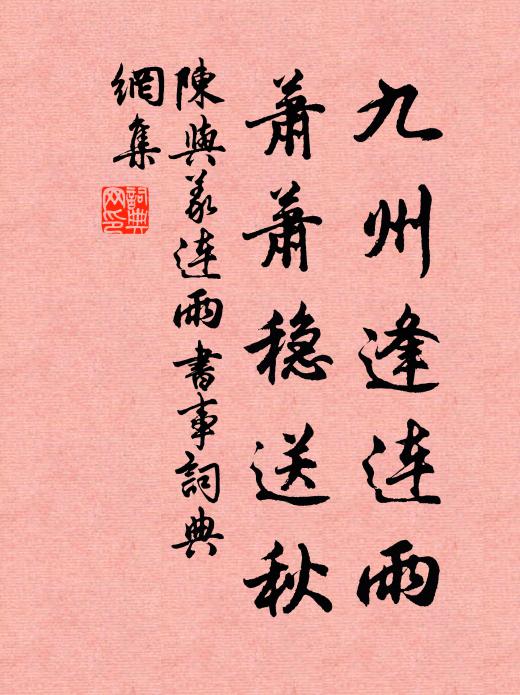 九州逢连雨
萧萧稳送秋
陳與義连雨書事詞典
網集
詞典
网印